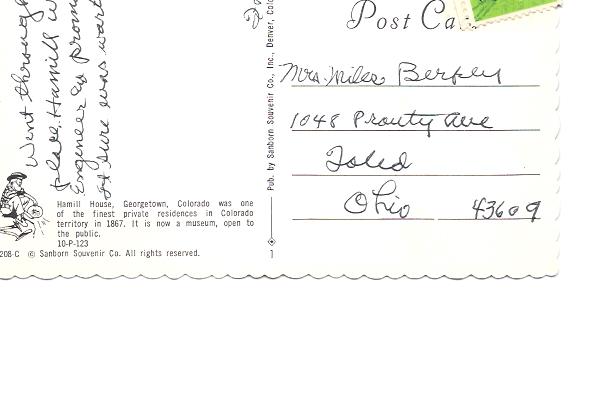 Post Ca
Mrs. Miles Berkey
1048 Prouty Ave
Toled
Ohio 43609
Went through
place. Hamill w
Engineer & prom
It sure was wort
Pub. by Sanborn Souvenir Co., Inc., Denver, Colo
Hamill House, Georgetown, Colorado was one
of the finest private residences in Colorado
territory in 1867. It is now a museum, open to
the public.
10-P-123
208-C © Sanborn Souvenir Co. All rights reserved.
1